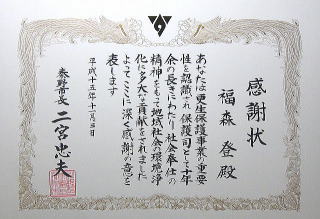 感謝状
福森 登 殿
あなたは更生保護事業の重要
性を認識され保護司として十年
余の長きにわたり社会奉仕の
精神をもって地域社会の環境浄
化に多大な貢献をされました
よってここに深く感謝の意を
表します
平成十五年十一月三日
秦野市長 二宮忠夫